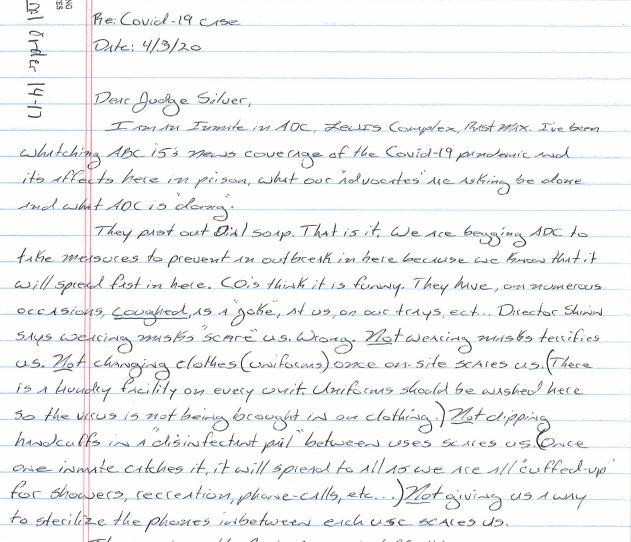 Re: Covid-19 case
Date: 4/3/20
Dear Judge Silver,
I am an Inmate in ADC, Lewis Complex, Rast Max. I've been
whatching ABC 15's news coverage of the Covid-19 pandemic and
it's affects here in prison, what our "advocates" are asking be done
and what ADC is "doing".
They past out Dial soap. That is it. We are begging ADC to
take measures to prevent an outbreak in here because we know that it
will spread fast in here. CO's think it is funny. They have, on numerous
occasions, coughed, as a "joke", at us, on our trays, ect... Director Shinn
says wearing masks "scare" us. Wrong. Not wearing masks terrifies
us. Not changing clothes (uniforms) once on-site scares us. (There
is a laundry facility on every unit. Uniforms should be washed here
so the virus is not being brought in on clothing.) Not dipping
handcuffs in a "disinfectant pail" between uses scares us. (Once
one inmate catches it, it will spread to all as we are all "cuffed-up"
for showers, recreation, phone-calls, etc...) Not giving us a way
to sterilize the phones inbetween each use scares us.
al Order 14-17